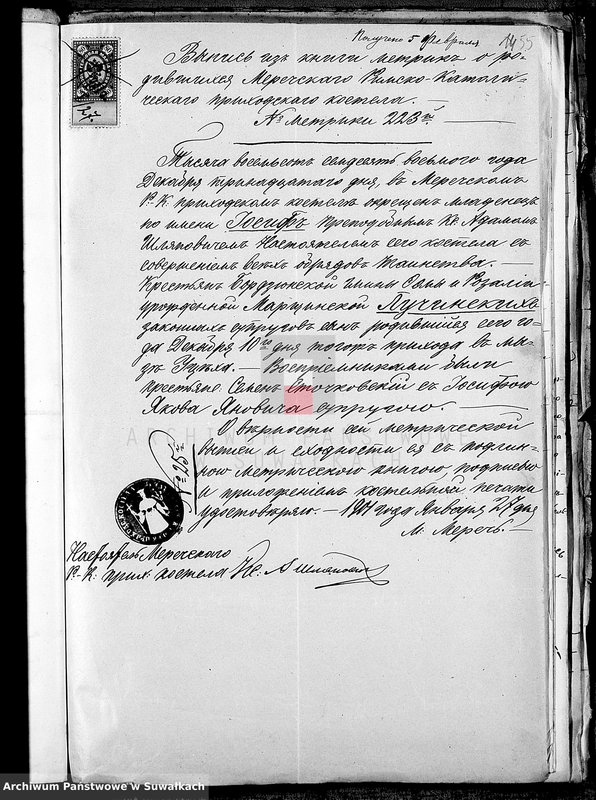 Получено 5 февраля
1455
Выпись из книги метрик о ро-
дившихся Меречского Римско-Католи-
ческого приходского костела. —
№ Метрики 223й. —
Тысяча восемьсот семдесят восьмого года
Декабря тринадцатаго дня, въ Меречскомъ
Р. К. приходскомъ костелѣ окрещенъ младенецъ
по имени Іосифъ преподобнымъ Кс. Адамомъ
Шляповичемъ Настоятелемъ сего костела съ
совершеніемъ всѣхъ обрядовъ таинства. —
Крестьянъ и Розаліи
урожденной Марцинской Лучинскихъ
законныхъ супруговъ сынъ родившійся сего го-
да Декабря 10го дня тогожъ прихода въ мы-
зѣ — Воспріемниками были
крестьяне Семенъ съ Іосифою
Якова Яновича супругою. —
О вѣрности сей метрической
выписи и сходности ея съ подлин-
ною метрическою книгою, подписью
и приложеніемъ костельной печати
удостовѣряю. — 1907 года Января дня
м. Меречь.
№ 25й
Настоятель Меречского
Р.-К. прих. костела Кс. А Шляпович
ARCHIWUM PAŃSTWOWE
Archiwum Państwowe w Suwałkach